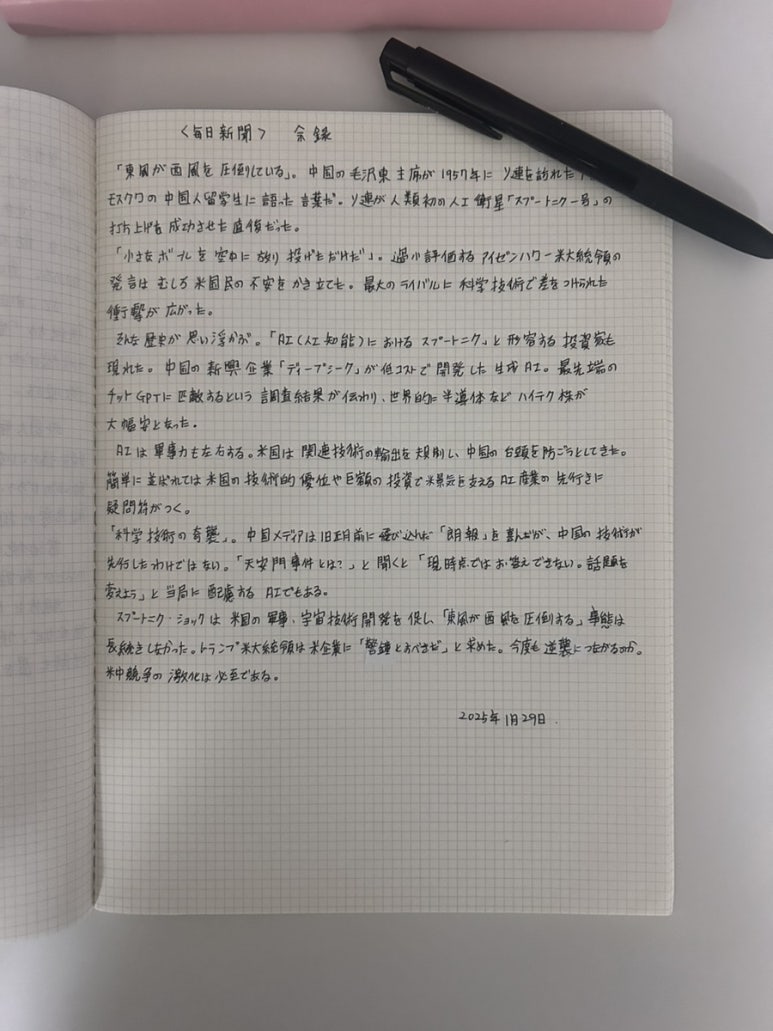 〈毎日新聞〉 余録
「東風が西風を圧倒している」。中国の毛沢東主席が1957年にソ連を訪れた
モスクワの中国人留学生に語った言葉だ。ソ連が人類初の人工衛星「スプートニク一号」の
打ち上げを成功させた直後だった。
「小さなボールを空中に放り投げただけだ」。過小評価するアイゼンハワー米大統領の
発言はむしろ米国民の不安をかき立てた。最大のライバルに科学技術で差をつけられた
衝撃が広がった。
そんな歴史が思い浮かぶ。「AI(人工知能)におけるスプートニク」と形容する投資家も
現れた。中国の新興企業「ディープシーク」が低コストで開発した生成AI。最先端の
チャットGPTに匹敵するという調査結果が伝わり、世界的に半導体などハイテク株が
大幅安となった。
AIは軍事力も左右する。米国は関連技術の輸出を規制し、中国の台頭を防ごうとしてきた。
簡単に並ばれては米国の技術的優位や巨額の投資で米景気を支えるAI産業の先行きに
疑問符がつく。
「科学技術の奇襲」。中国メディアは旧正月前に飛び込んだ「朗報」を喜んだが、中国の技術が
先行したわけではない。「天安門事件とは?」と聞くと「現時点ではお答えできない。話題を
変えよう」と当局に配慮するAIでもある。
スプートニク・ショックは米国の軍事、宇宙技術開発を促し、「東風が西風を圧倒する」事態は
長続きしなかった。トランプ米大統領は米企業に「警鐘とすべきだ」と求めた。今度も逆襲につながるのか。
米中競争の激化は必至である。
2025年1月29日.